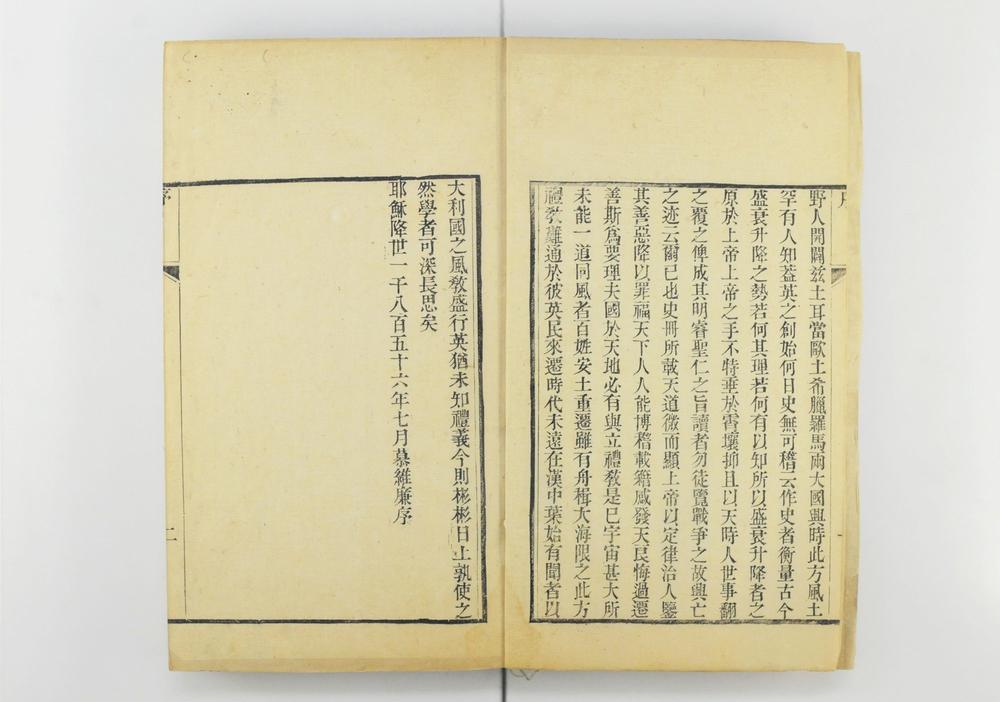 序
野人開闢兹土耳當歐土希臘羅馬兩大國興時此方風土
罕有人知葢英之創始何日史無可稽云作史者衡量古今
盛衰升降之勢若何其理若何有以知所以盛衰升降者之
原於上帝上帝之手不特垂於霄壤抑且以天時人世事翻
之覆之俾成其明睿聖仁之旨讀者勿徒覽戰爭之故興亡
之迹云爾已也史冊所載天道微而顯上帝以定律治人鑒
其善惡降以罪福天下人人能博稽載籍感發天良悔過遷
善斯爲要理夫國於天地必有與立禮敎是已宇宙甚大所
未能一道同風者百姓安土重遷雖有舟楫大海限之此方
禮敎難通於彼英民來遷時代未遠在漢中葉始有聞者以
大利國之風敎盛行英猶未知禮義今則彬彬日上孰使之
然學者可深長思矣
耶穌降世一千八百五十六年七月慕維廉序
序
二